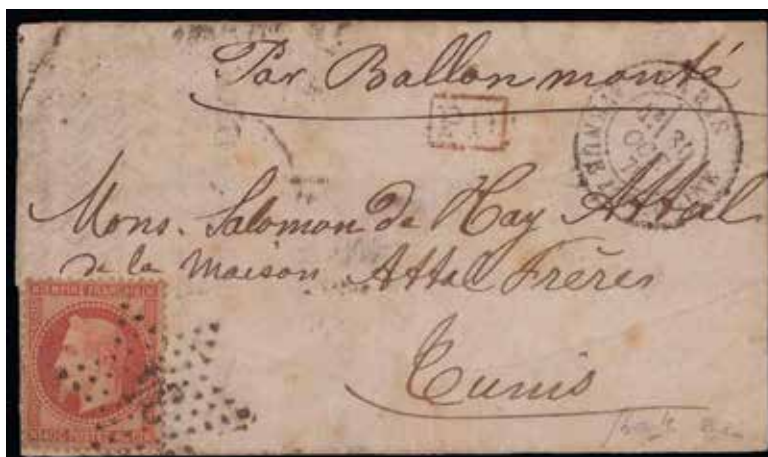 Par Ballon monté
PARIS
OCT
PD
Mons. Salomon de Hay Attal
de la Maison Attal Frères
Tunis
EMPIRE FRANÇAIS